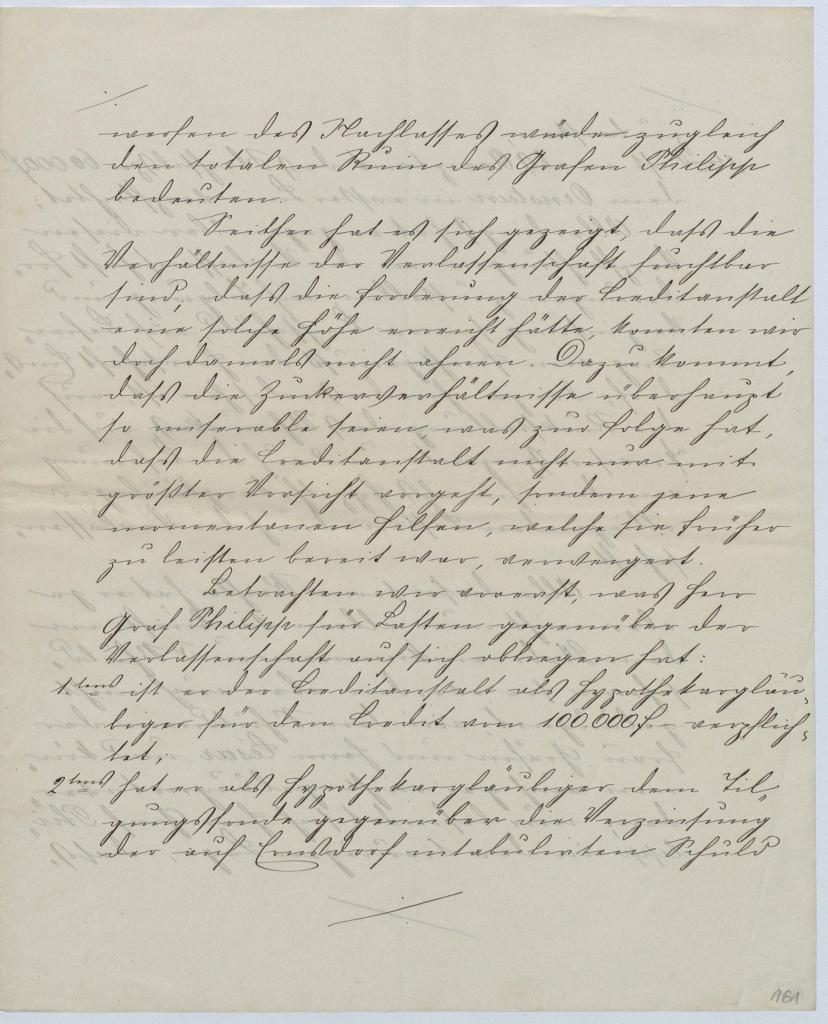 werfen des Nachlasses würde zugleich
den totalen Ruin des Grafen Philipp
bedeuten.
Seither hat es sich gezeigt, dass die
Verhältnisse der Verlassenschaft furchtbar
sind, dass die Forderung der Creditanstalt
eine solche Höhe erreicht hätte, konnten wir
doch damals nicht ahnen. Dazu kommt,
dass die Zuckerverhältnisse überhaupt
so miserable seien was zur Folge hat,
dass die Creditanstalt nicht nur mit
größter Vorsicht vorgeht, sondern jene
momentanen Hilfen, welche sie früher
zu leisten bereit war, verweigert.
Betrachten wir vorerst, was Herr
Graf Philipp für Lasten gegenüber der
Verlassenschaft auf sich obliegen hat:
1tens ist er der Creditanstalt als Hypothekargläu-
biger für den Credit von 100.000 f - verpflich-
tet;
2tens hat er als Hypothekargläubiger dem Til-
gungsfonde gegenüber die Verzinsung
der auf Ernsdorf intabulirten Schuld
161